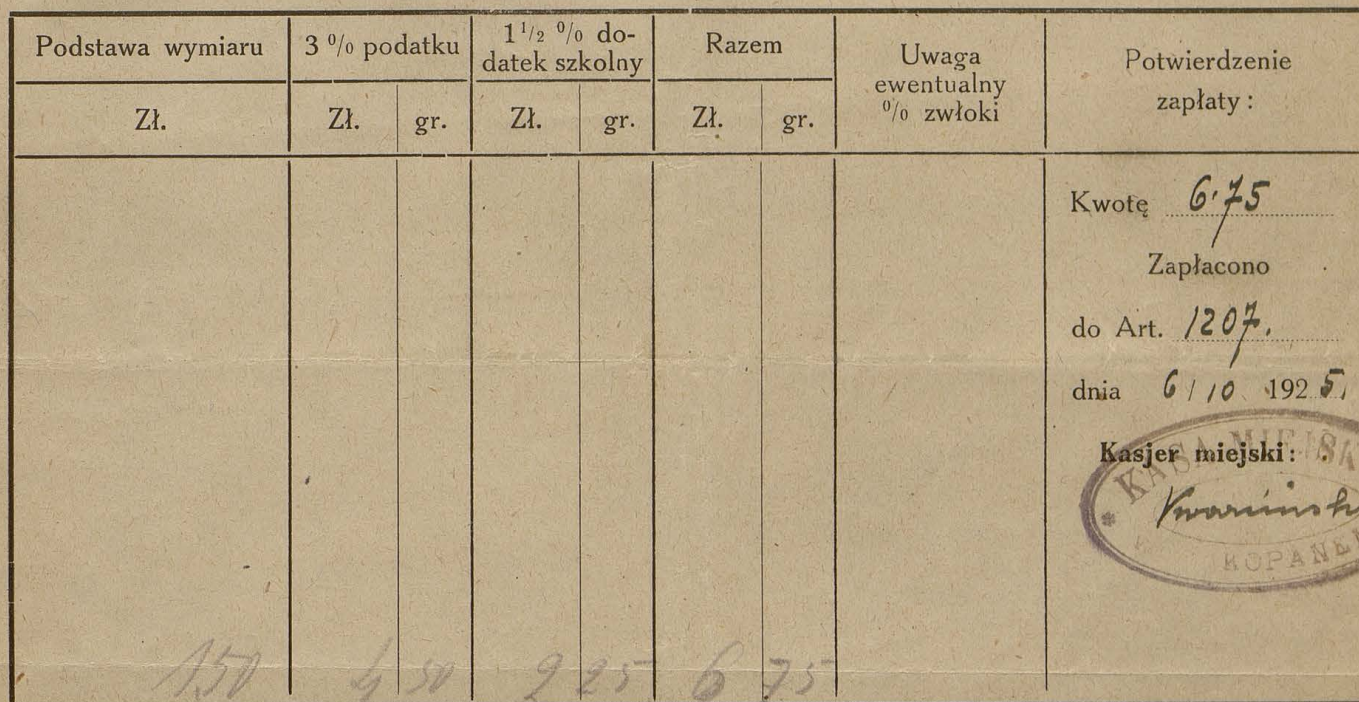 Podstawa wymiaru
3 % podatku
1 1/2 % do-
datek szkolny
Razem
Uwaga
ewentualny
% zwłoki
Potwierdzenie
zapłaty :
Zł.
Zł. gr.
Zł. gr.
Zł. gr.
Kwotę 6·75
Zapłacono
do Art. 1207.
dnia 6/10 1925.
Kasjer miejski:
* KASA MIEJSK
KOPANE
150 4 50 2 25 6 75